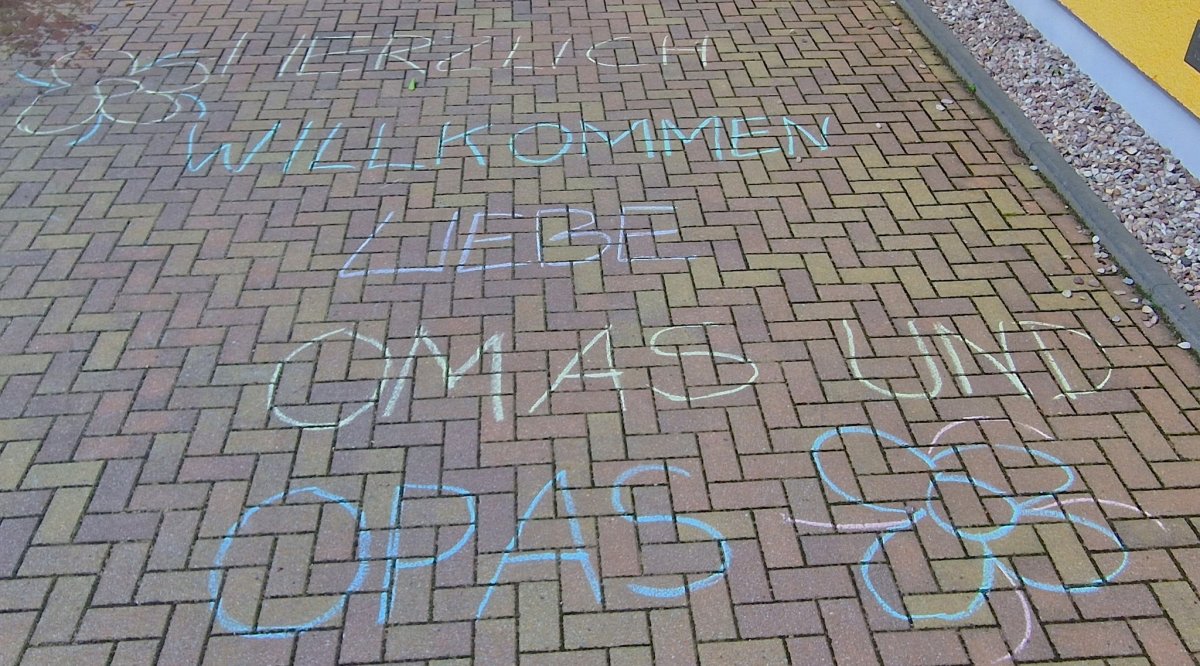 HERZLICH
WILLKOMMEN
LIEBE
OMAS UND
OPAS